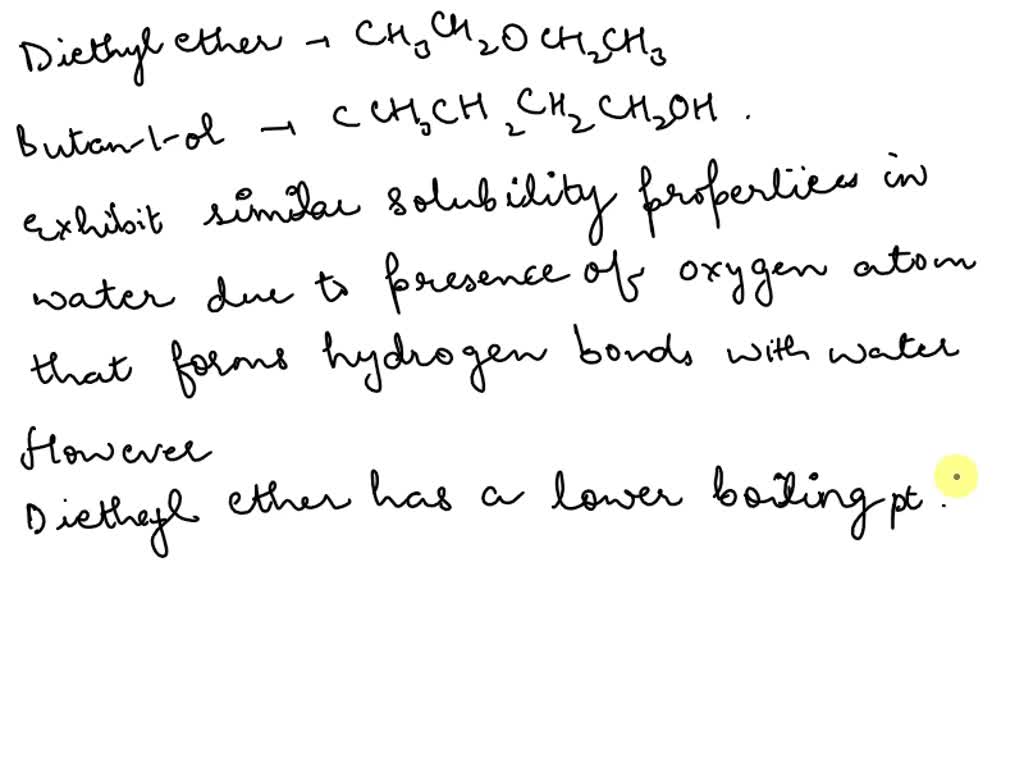 Diethyl ether → CH₃CH₂OCH₂CH₃
Butan-1-ol → C CH₃CH₂CH₂CH₂OH.
exhibit similar solubility properties in
water due to presence of oxygen atom
that forms hydrogen bonds with water
However
Diethyl ether has a lower boiling pt.